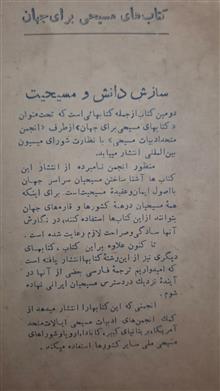 کتاب های مسیحی برای جهان
سازش دانش و مسیحیت
دومین کتاب از جمله کتابهائی است که تحت عنوان
«کتابهای مسیحی برای جهان» از طرف «انجمن
متحد ادبیات مسیحی» با نظارت شورای میسیون
بین المللی انتشار مییابد.
منظور انجمن نامبرده از انتشار این
کتاب ها آشنا ساختن مسیحیان سراسر جهان
با اصول ایمان و عقیدهٔ مسیحیت است. برای اینکه
همهٔ مسیحیان در همهٔ کشورها و قاره های جهان
بتوانند از این کتابها استفاده کنند، در نگارش
آنها سادگی و صراحت لازم رعایت شده است.
تا کنون علاوه بر این کتاب، کتابهای
دیگری نیز از این رشتهٔ کتابها انتشار یافته است
که امیدواریم ترجمهٔ فارسی بعضی از آنها در
آیندهٔ نزدیک در دسترس مسیحیان ایرانی نهاده
شوم.
انجمنی که این کتابها را انتشار میدهد از
کمک انجمن های ادبیات مسیحی ایالات متحد
آمریکا و بریتانیای کبیر و کانادا، اروپا و شوراهای
مسیحی ملی سایر کشورها استفاده میکند.